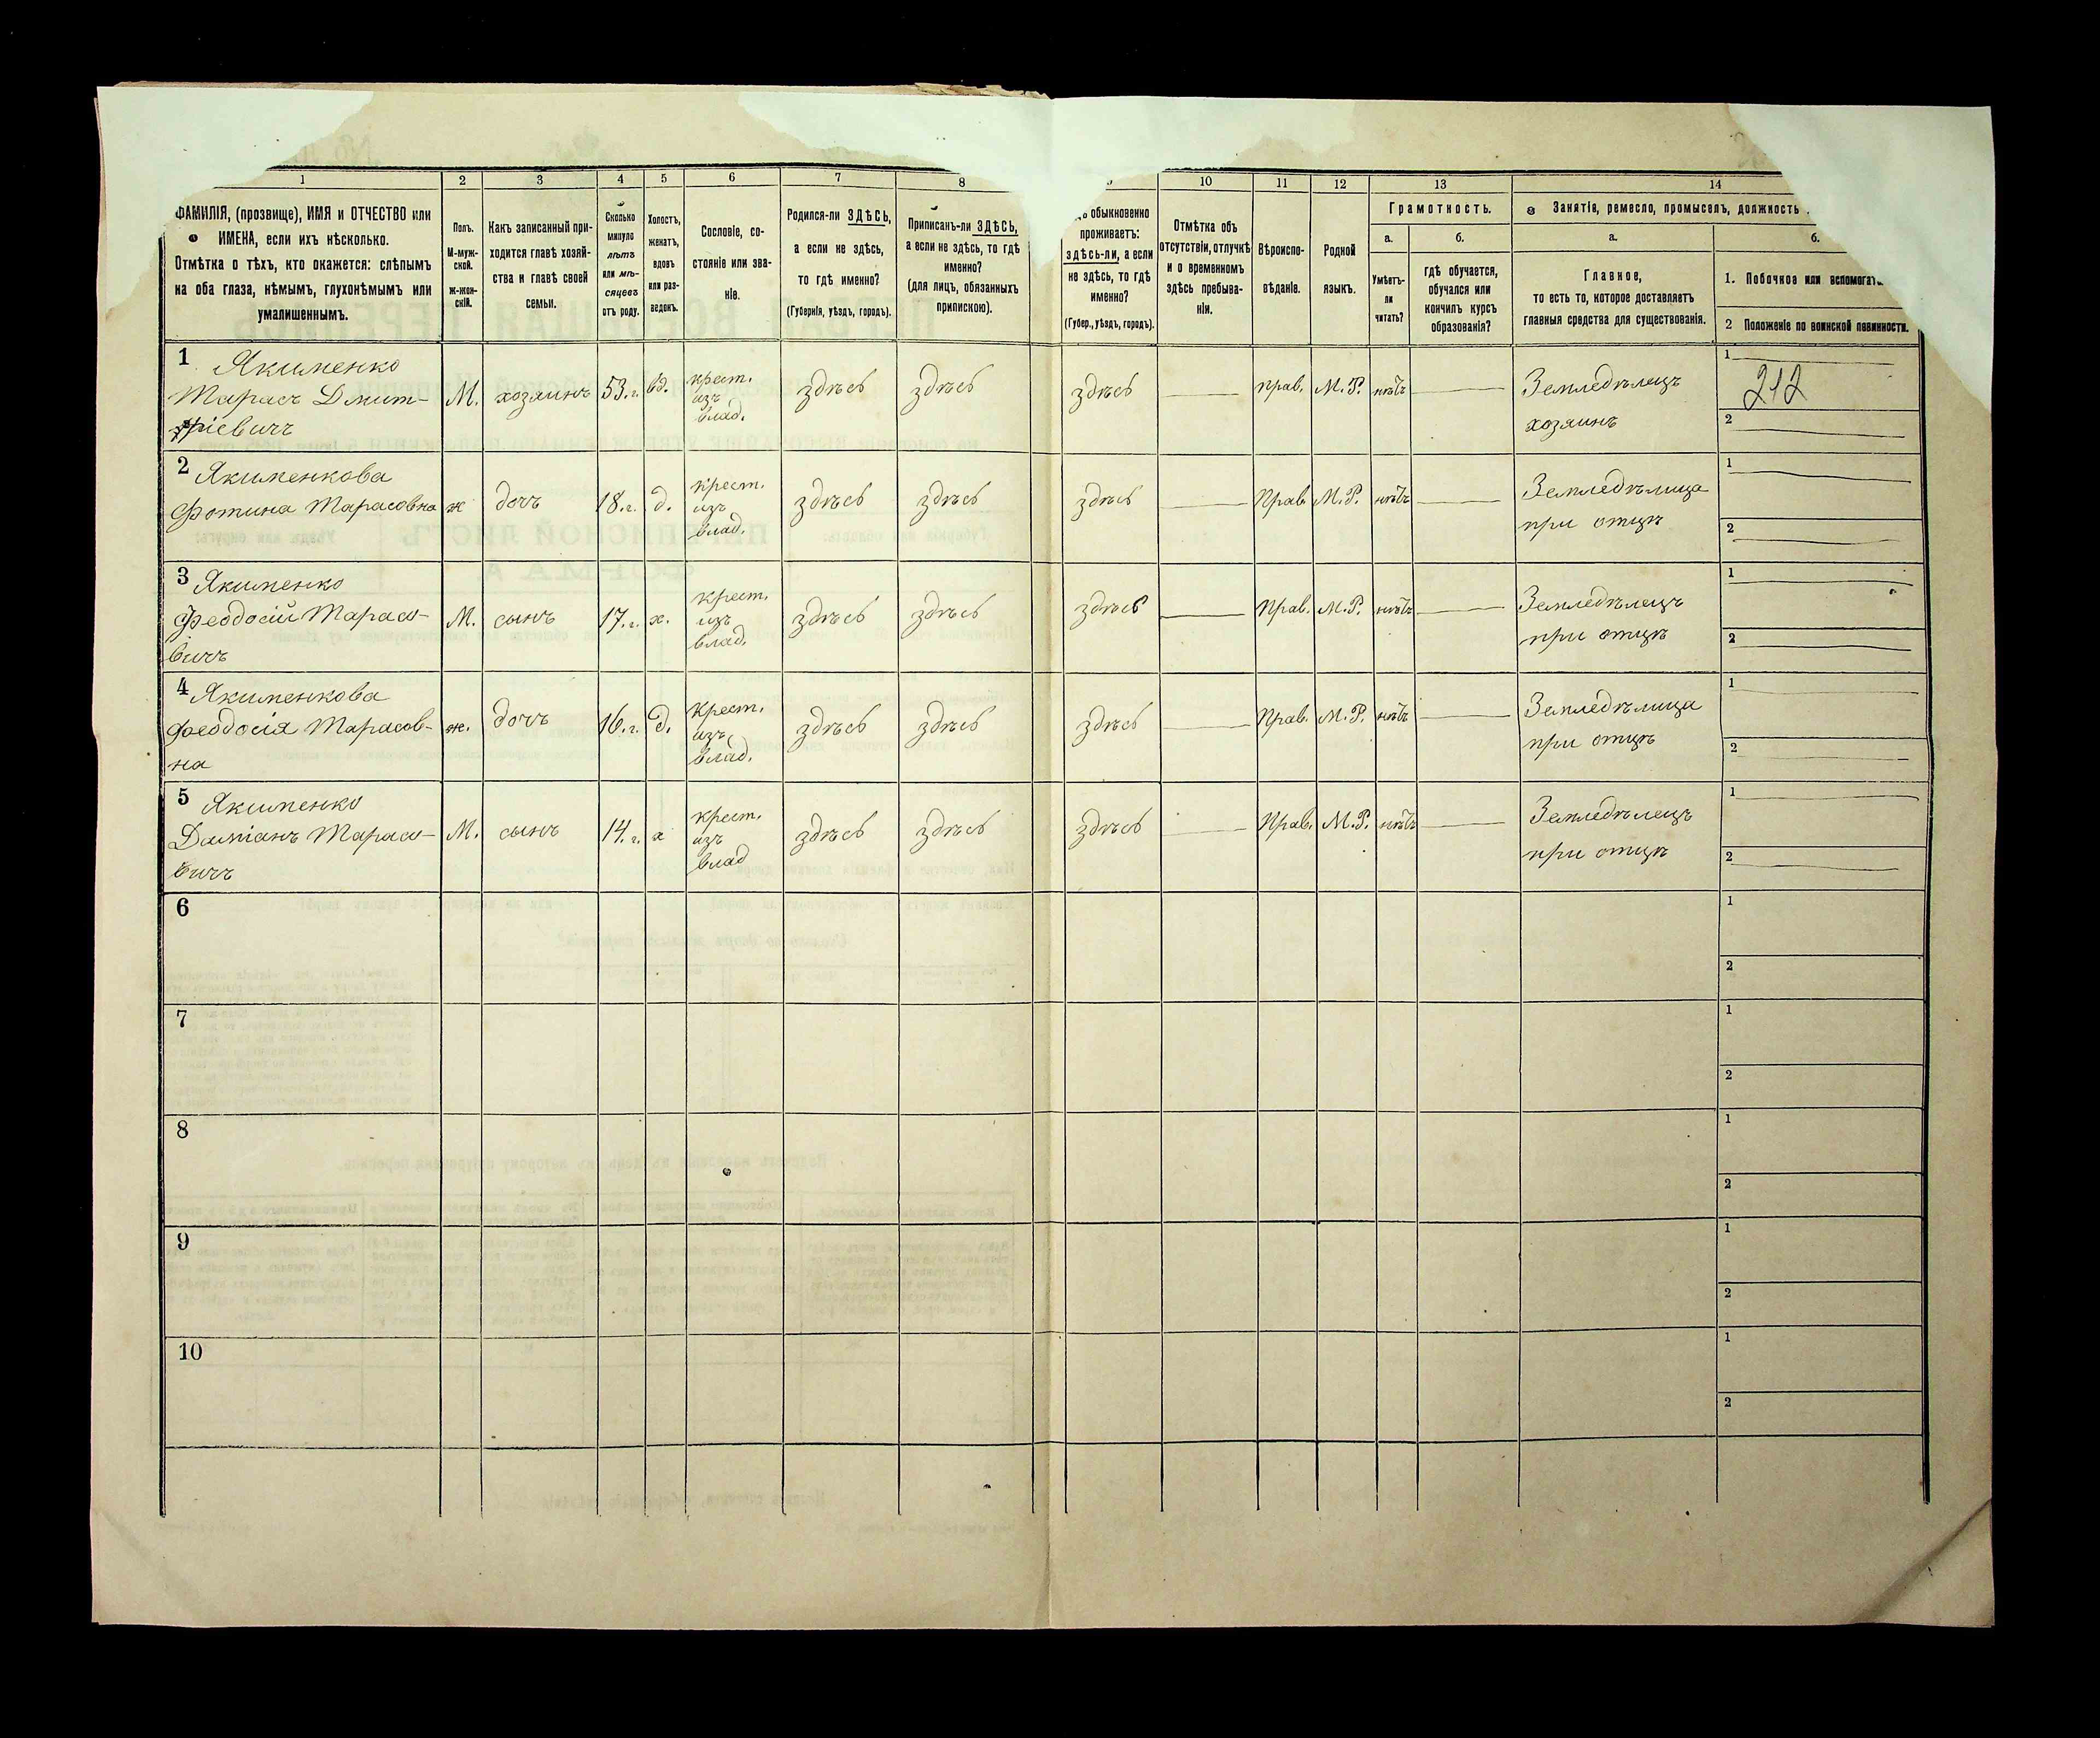 1 2 3 4 5 6 7 8 10 11 12 13 14
ФАМИЛІЯ, (прозвище), ИМЯ и ОТЧЕСТВО или
ИМЕНА, если ихъ нѣсколько.
Отмѣтка о тѣхъ, кто окажется: слѣпымъ
на оба глаза, нѣмымъ, глухонѣмымъ или
умалишеннымъ.
Полъ.
М-муж-
ской.
ж-жен-
скій.
Какъ записанный при-
ходится главѣ хозяй-
ства и главѣ своей
семьи.
Сколько
минуло
лѣтъ
или мѣ-
сяцевъ
отъ роду.
Холостъ,
женатъ,
вдовъ
или раз-
веденъ.
Сословіе, со-
стояніе или зва-
ніе.
Родился-ли ЗДѢСЬ,
а если не здѣсь,
то гдѣ именно?
(Губернія, уѣздъ, городъ).
Приписанъ-ли ЗДѢСЬ,
а если не здѣсь, то гдѣ
именно?
(для лицъ, обязанныхъ
припискою).
обыкновенно
проживаетъ:
здѣсь-ли, а если
не здѣсь, то гдѣ
именно?
(Губер., уѣздъ, городъ).
Отмѣтка объ
отсутствіи, отлучкѣ
и о временномъ
здѣсь пребыва-
ніи.
Вѣроиспо-
вѣданіе.
Родной
языкъ.
Грамотность.
а.
Умѣетъ-
ли
читать?
б.
гдѣ обучается,
обучался или
кончилъ курсъ
образованія?
Занятіе, ремесло, промыселъ, должность
а.
Главное,
то есть то, которое доставляетъ
главныя средства для существованія.
б.
1. Побочное или вспомогат
2 Положеніе по воинской повинности.
1 Якименко
Тарасъ Дмит-
ріевичъ
М. хозяинъ 53.г. вд.
крест.
изъ
влад.
здѣсь здѣсь здѣсь прав. М.Р. нѣтъ
Земледѣлецъ
хозяинъ
1
212
2
2 Якименкова
Фотина Тарасовна
ж дочь 18.г. д.
крест.
изъ
влад.
здѣсь здѣсь здѣсь Прав. М.Р. нѣтъ
Земледѣлица
при отцѣ
1
2
3 Якименко
Феодосій Тарасо-
вичъ
М. сынъ 17.г. х.
крест.
изъ
влад.
здѣсь здѣсь здѣсь Прав. М.Р. нѣтъ
Земледѣлецъ
при отцѣ
1
2
4 Якименкова
Феодосія Тарасов-
на
ж. дочь 16.г. д.
Крест.
изъ
влад.
здѣсь здѣсь здѣсь Прав. М.Р. нѣтъ
Земледѣлица
при отцѣ
1
2
5 Якименко
Даміанъ Тарасо-
вичъ
М. сынъ 14.г. х
крест.
изъ
влад
здѣсь здѣсь здѣсь Прав. М.Р. нѣтъ
Земледѣлецъ
при отцѣ
1
2
6
1
2
7
1
2
8
1
2
9
1
2
10
1
2